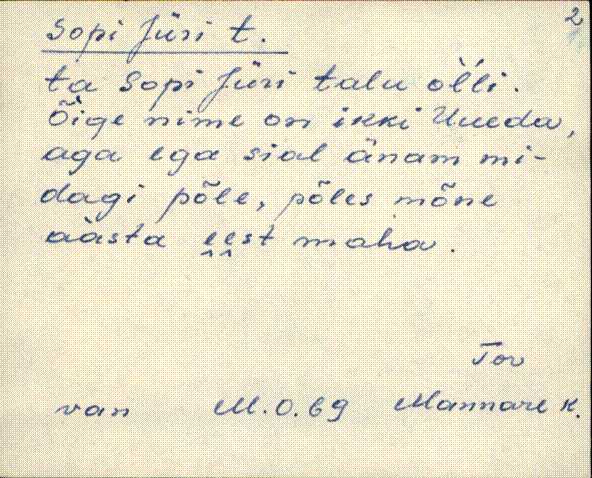 2
Sopi Jüri t.
ta Sopi Jüri talu òlli.
Õige nime on ikki Uueda,
aga ega sial änam mi-
dagi põle, põles mõne
aàsta e̬e̬st maha.
Tor
van M.O.69 Mannare k.